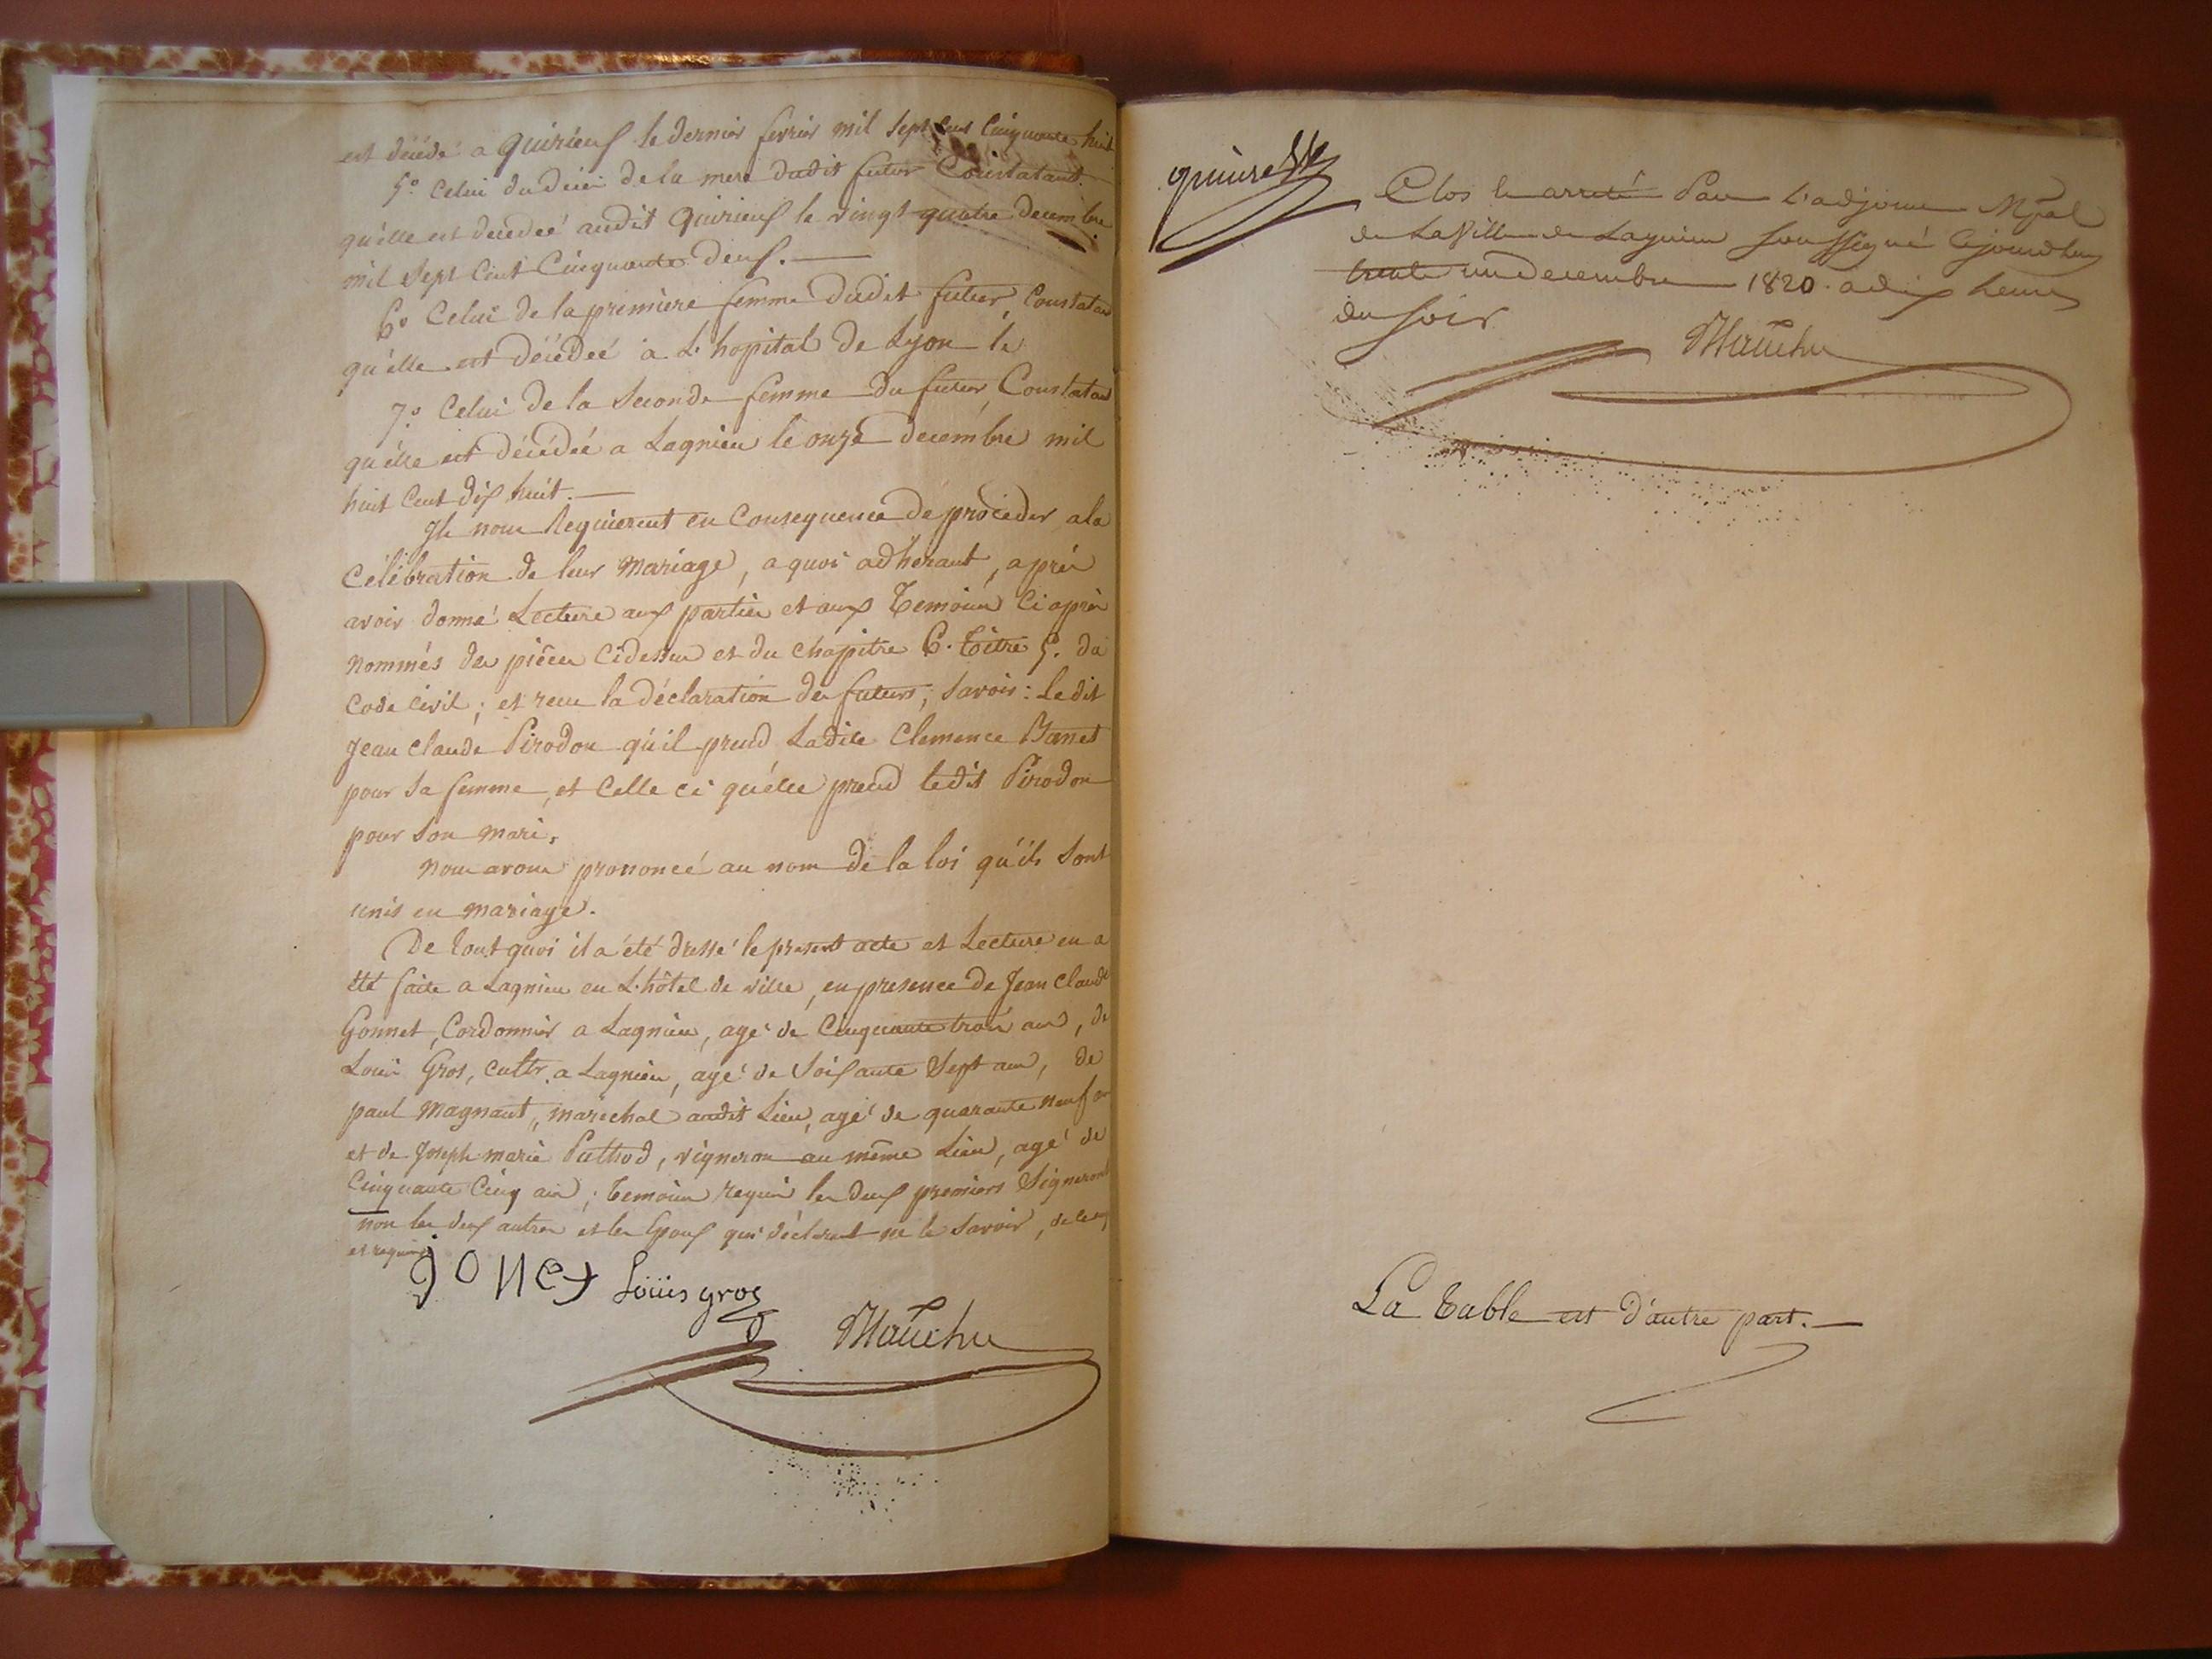 est décédé a Quirieuf le dernier fevrier mil sept cent cinquante huit
5° Celui du décès de la mere dudit futur Constatant
qu'elle est décédeé audit Quirieuf le vingt quatre decembre
mil Sept Cent Cinquante deuf.
6° Celui de la premiere femme dudit futur, Constatant
qu'elle est décédeé a L'hopital de Lyon le
7° Celui de la Seconde femme du futur, Constatant
qu'elle est décédée a Lagnieu le onze decembre mil
huit Cent dix huit.
Ils nous Requierent en Consequence de proceder a la
Célébration de leur Mariage, a quoi adherant, après
avoir donné Lecture aux parties et aux Temoins Ci après
nommés des pièces cidessus et du chapitre 6. titre 5. du
Code Civil; et recu la déclaration des futurs; Savoir: ledit
Jean Claude Pirodon qu'il prend Ladite Clemence Banet
pour Sa femme, et Celle ci qu'elle prend ledit Pirodon
pour Son mari,
Nous avons prononcé au nom de la loi qu'ils Sont
unis en mariage.
De tout quoi il a été dressé le present acte et Lecture en a
été faite a Lagnieu en L'hôtel de ville, en presence de Jean Claude
Gonnet, Cordonnier a Lagnieu, agé de Cinquante trois ans, de
Louis Gros, cultr. a Lagnieu, agé de Soixante Sept ans, de
paul Magnant, marechal audit Lieu, agé de quarante neuf ans
et de Joseph marie Puthod, vigneron au même Lieu, agé de
Cinquante Cinq ans; Temoins requis les deux premiers Signeront
non les deux autres et les Epoux qui déclarent ne le Savoir, de ce
et requis
gonet Loüis gros
Mauchu
Clos le arreté Par L'adjoint Mpal
de La Ville de Lagnieu Soussigné Cejourdhuy
trente un decembre 1820. a dix heures
du Soir
Mauchu
La Table est d'autre part.